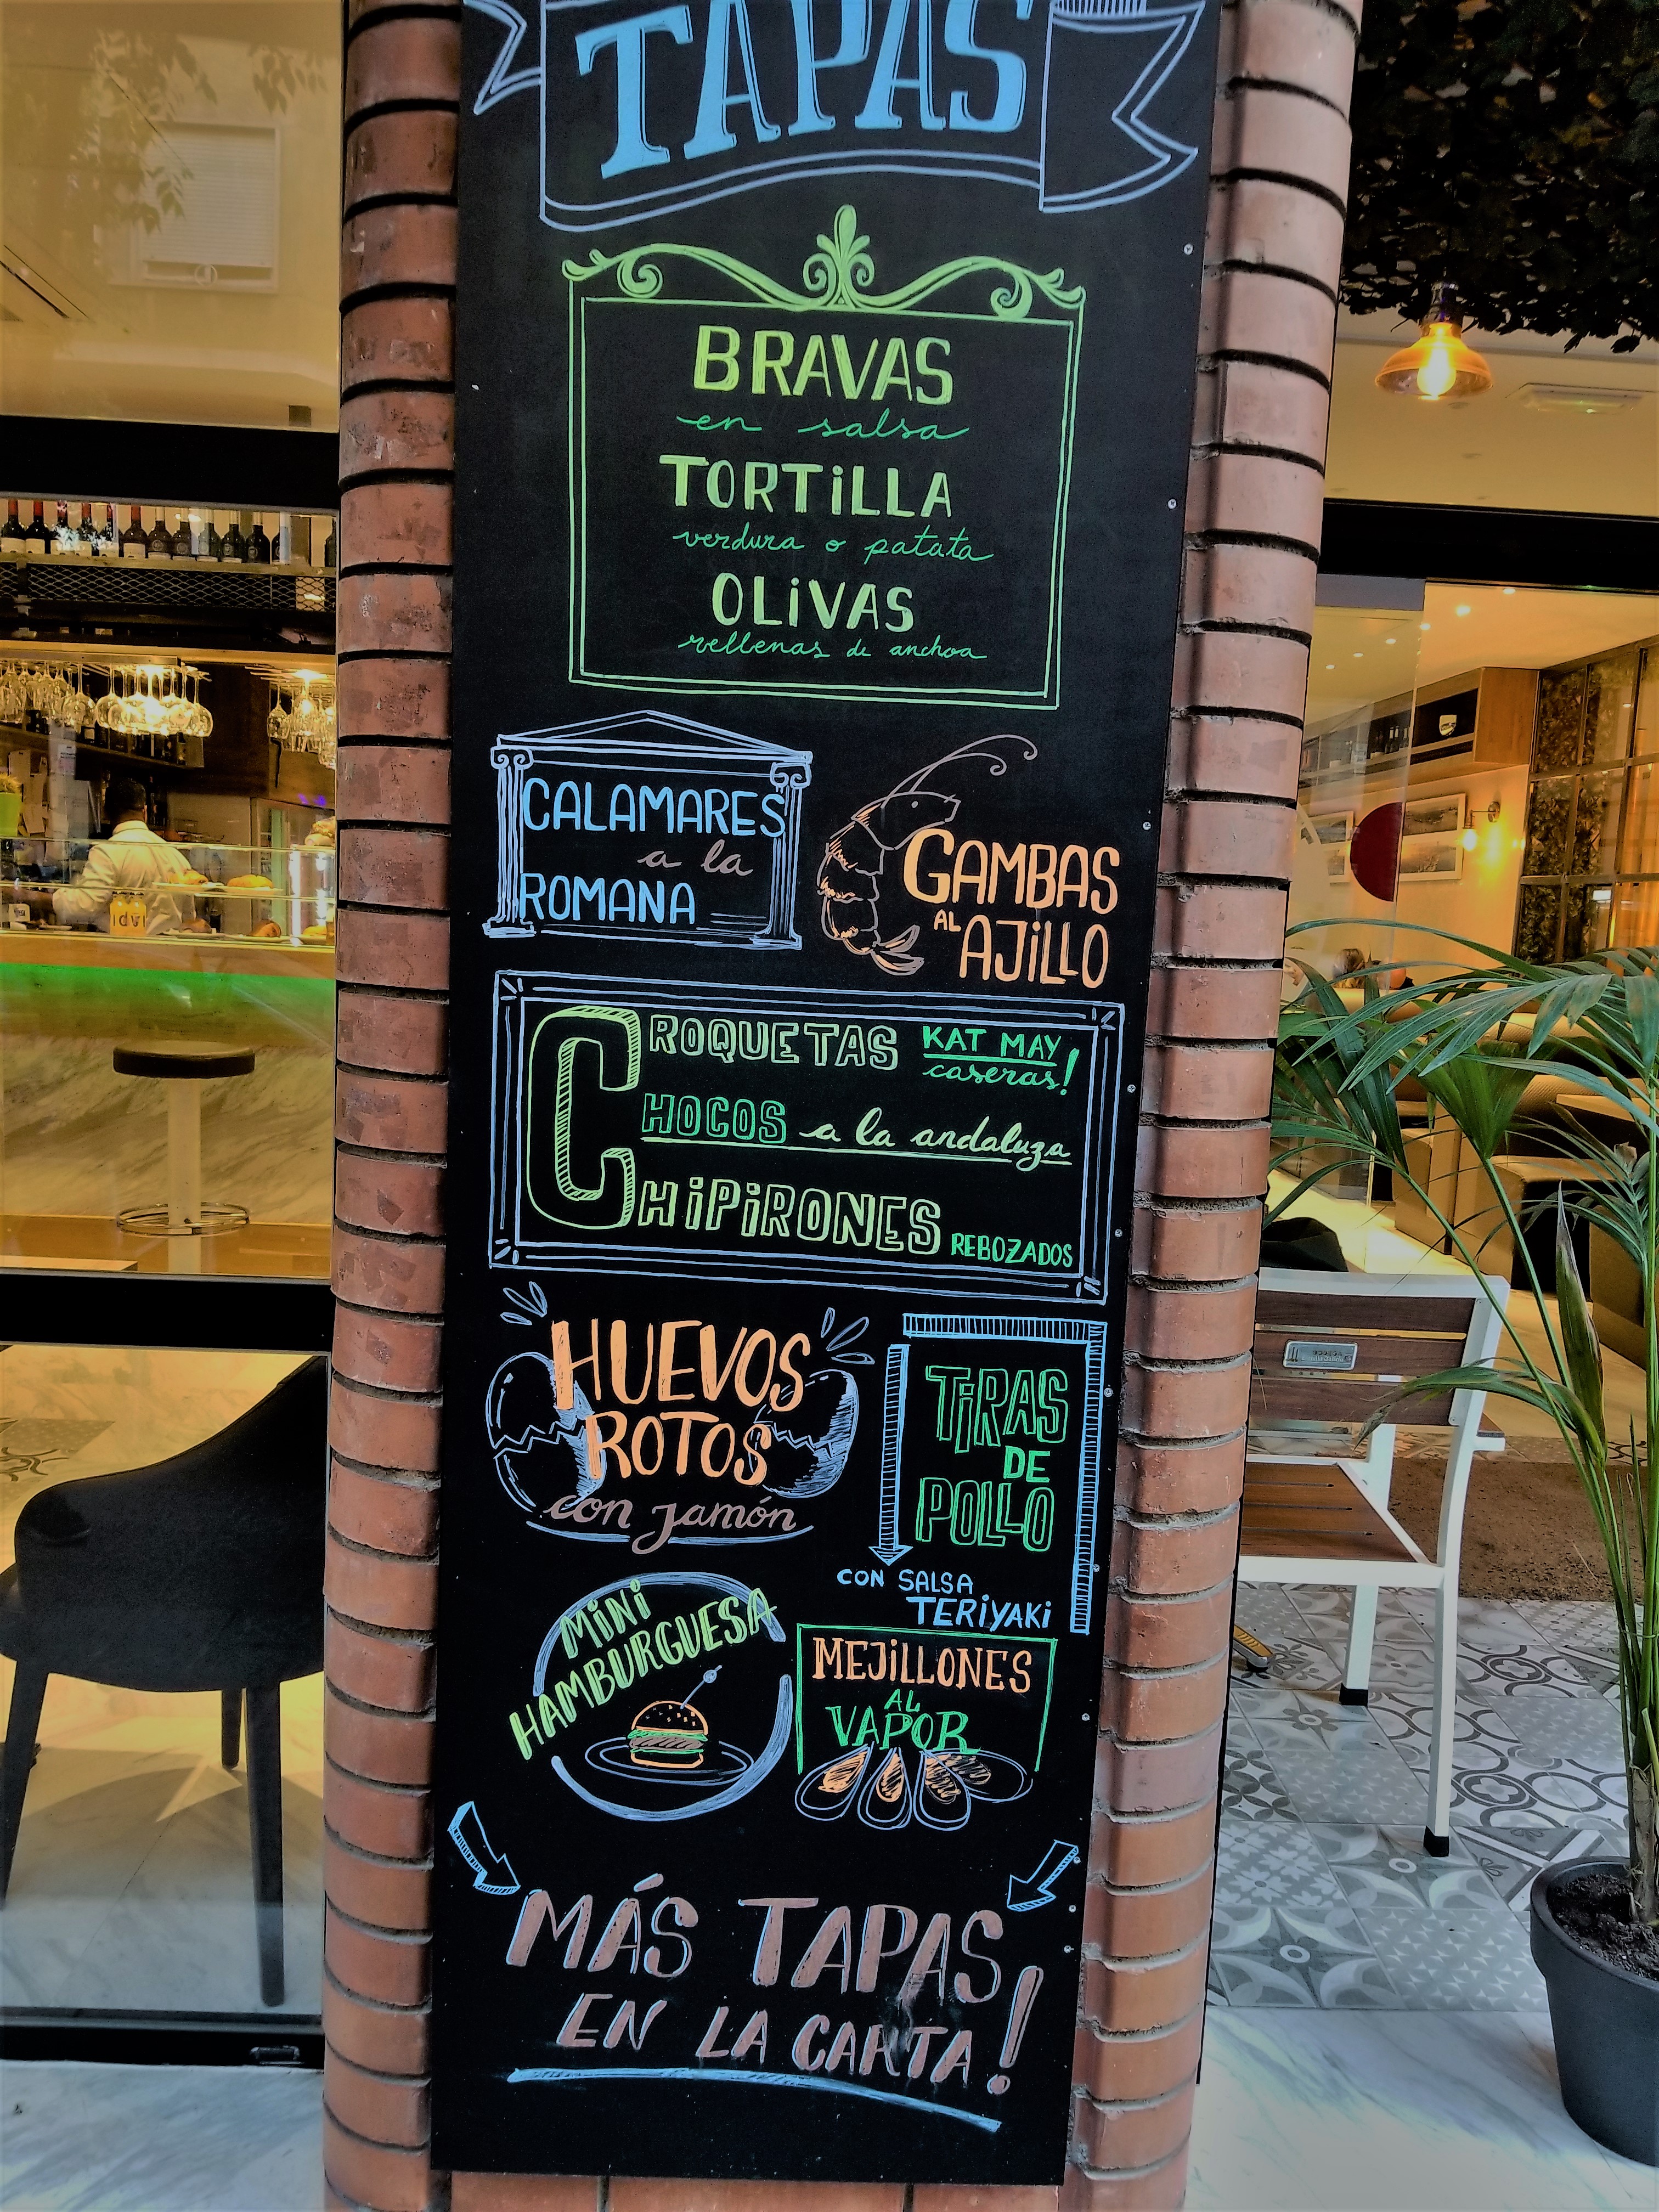 TAPAS
BRAVAS
en salsa
TORTiLLA
verdura o patata
OLiVAS
rellenas de anchoa
CALAMARES
a la
ROMANA
GAMBAS
AL
AJiLLO
CROQUETAS KAT MAY
caseras!
CHOCOS a la andaluza
CHiPiRONES REBOZADOS
HUEVOS
ROTOS
con jamón
TiRAS
DE
POLLO
CON SALSA
TERiYAKi
MiNi
HAMBURGUESA
MEJiLLONES
AL
VAPOR
MÁS TAPAS
EN LA CARTA!